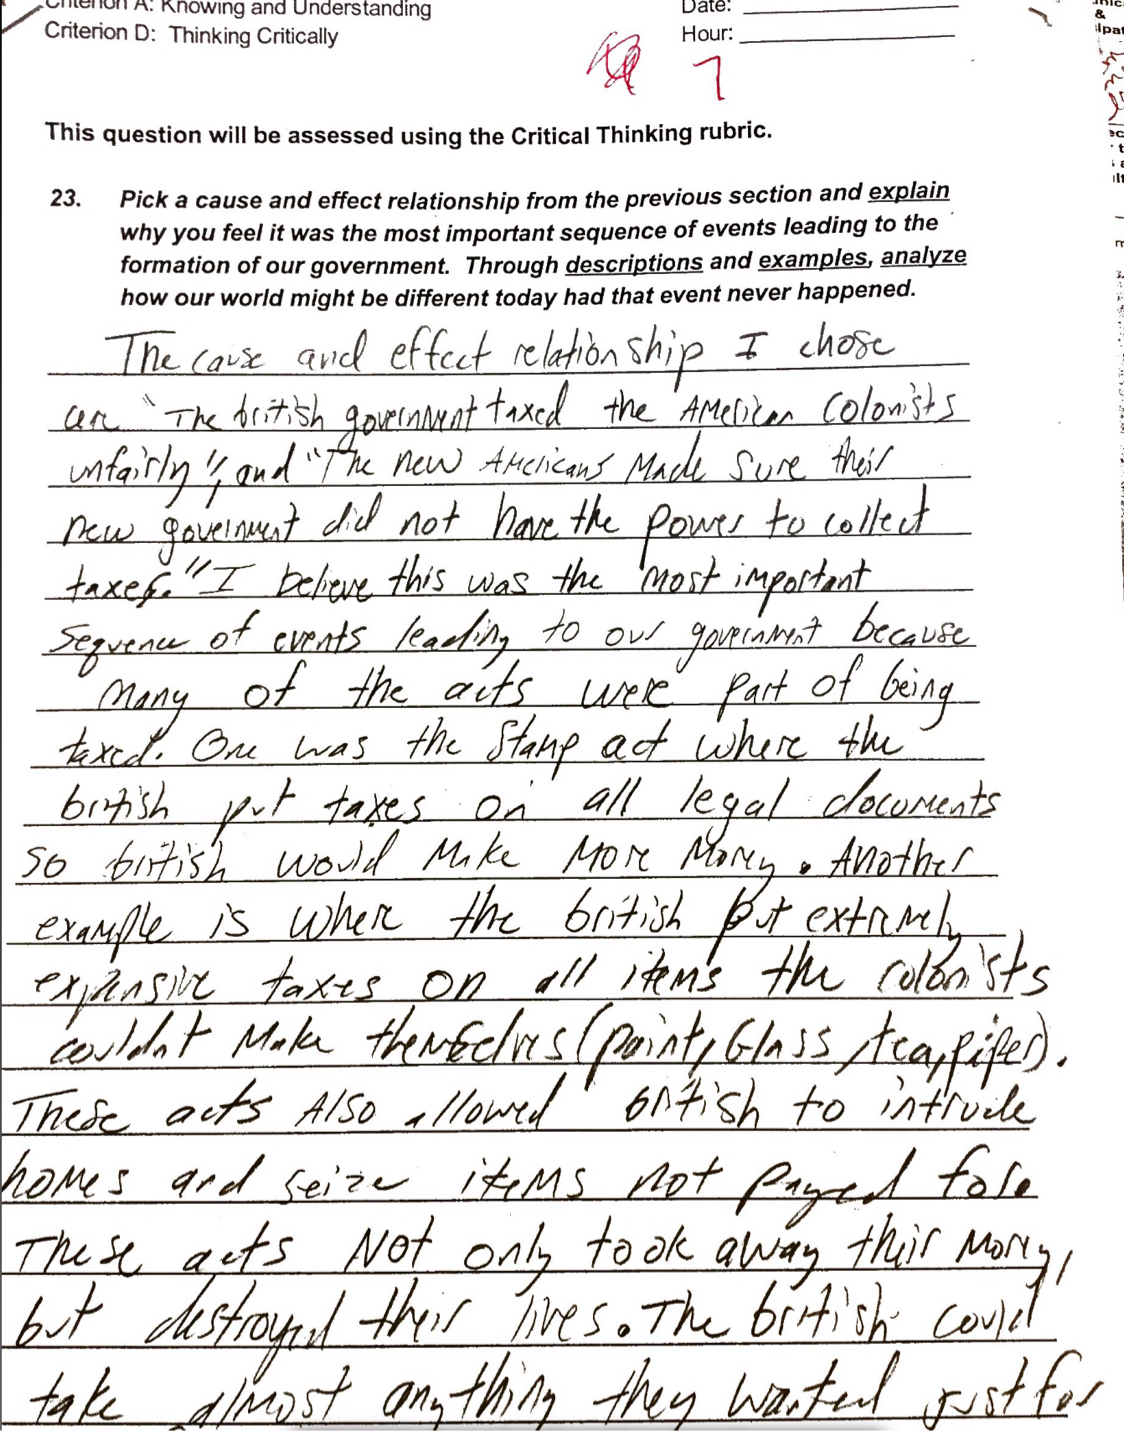 Criterion A: Knowing and Understanding
Date:
Criterion D: Thinking Critically
Hour:
7
This question will be assessed using the Critical Thinking rubric.
23. Pick a cause and effect relationship from the previous section and explain
why you feel it was the most important sequence of events leading to the
formation of our government. Through descriptions and examples, analyze
how our world might be different today had that event never happened.
The cause and effect relationship I chose
are "The british government taxed the American Colonists
unfairly", and "The new Americans Made Sure their
new government did not have the power to collect
taxes." I believe this was the most important
Sequence of events leading to our government because
many of the acts were part of being
taxed. One was the Stamp act where the
british put taxes on all legal documents
so british would Make More Money. Another
example is where the british put extremely
expensive taxes on all items the colonists
couldnt Make themselves (paint, Glass, tea, paper).
These acts Also allowed british to intrude
homes and seize items not payed for.
These acts Not only took away their Money,
but destroyed their lives. The british could
take almost anything they wanted just for